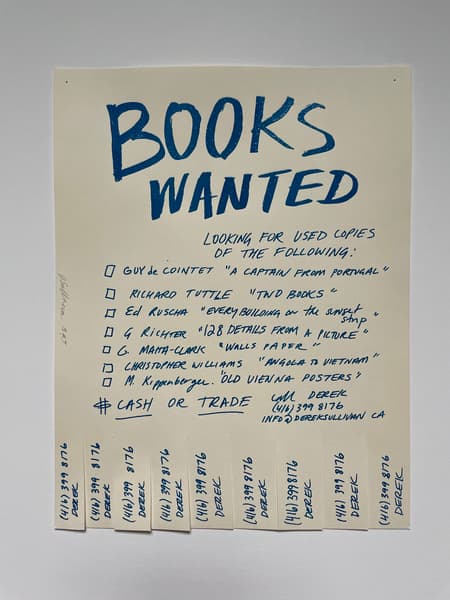 BOOKS
WANTED
LOOKING FOR USED COPIES
OF THE FOLLOWING:
GUY de COINTET "A CAPTAIN FROM PORTUGAL"
RICHARD TUTTLE "TWO BOOKS"
Ed RUSCHA "EVERY BUILDING ON THE SUNSET
STRIP"
G RICHTER "128 DETAILS FROM A PICTURE"
G. MATTA-CLARK "WALLS PAPER"
CHRISTOPHER WILLIAMS "ANGOLA TO VIETNAM"
M. Kippenberger. "OLD VIENNA POSTERS"
$ CASH OR TRADE
call DEREK
(416) 399 8176
INFO@DEREKSULLIVAN CA
(416) 399 8176
DEREK
(416) 399 8176
DEREK
(416) 399 8176
DEREK
(416) 399 8176
DEREK
(416) 399 8176
DEREK
(416) 399 8176
DEREK
(416) 399 8176
DEREK
(416) 399 8176
DEREK
(416) 399 8176
DEREK